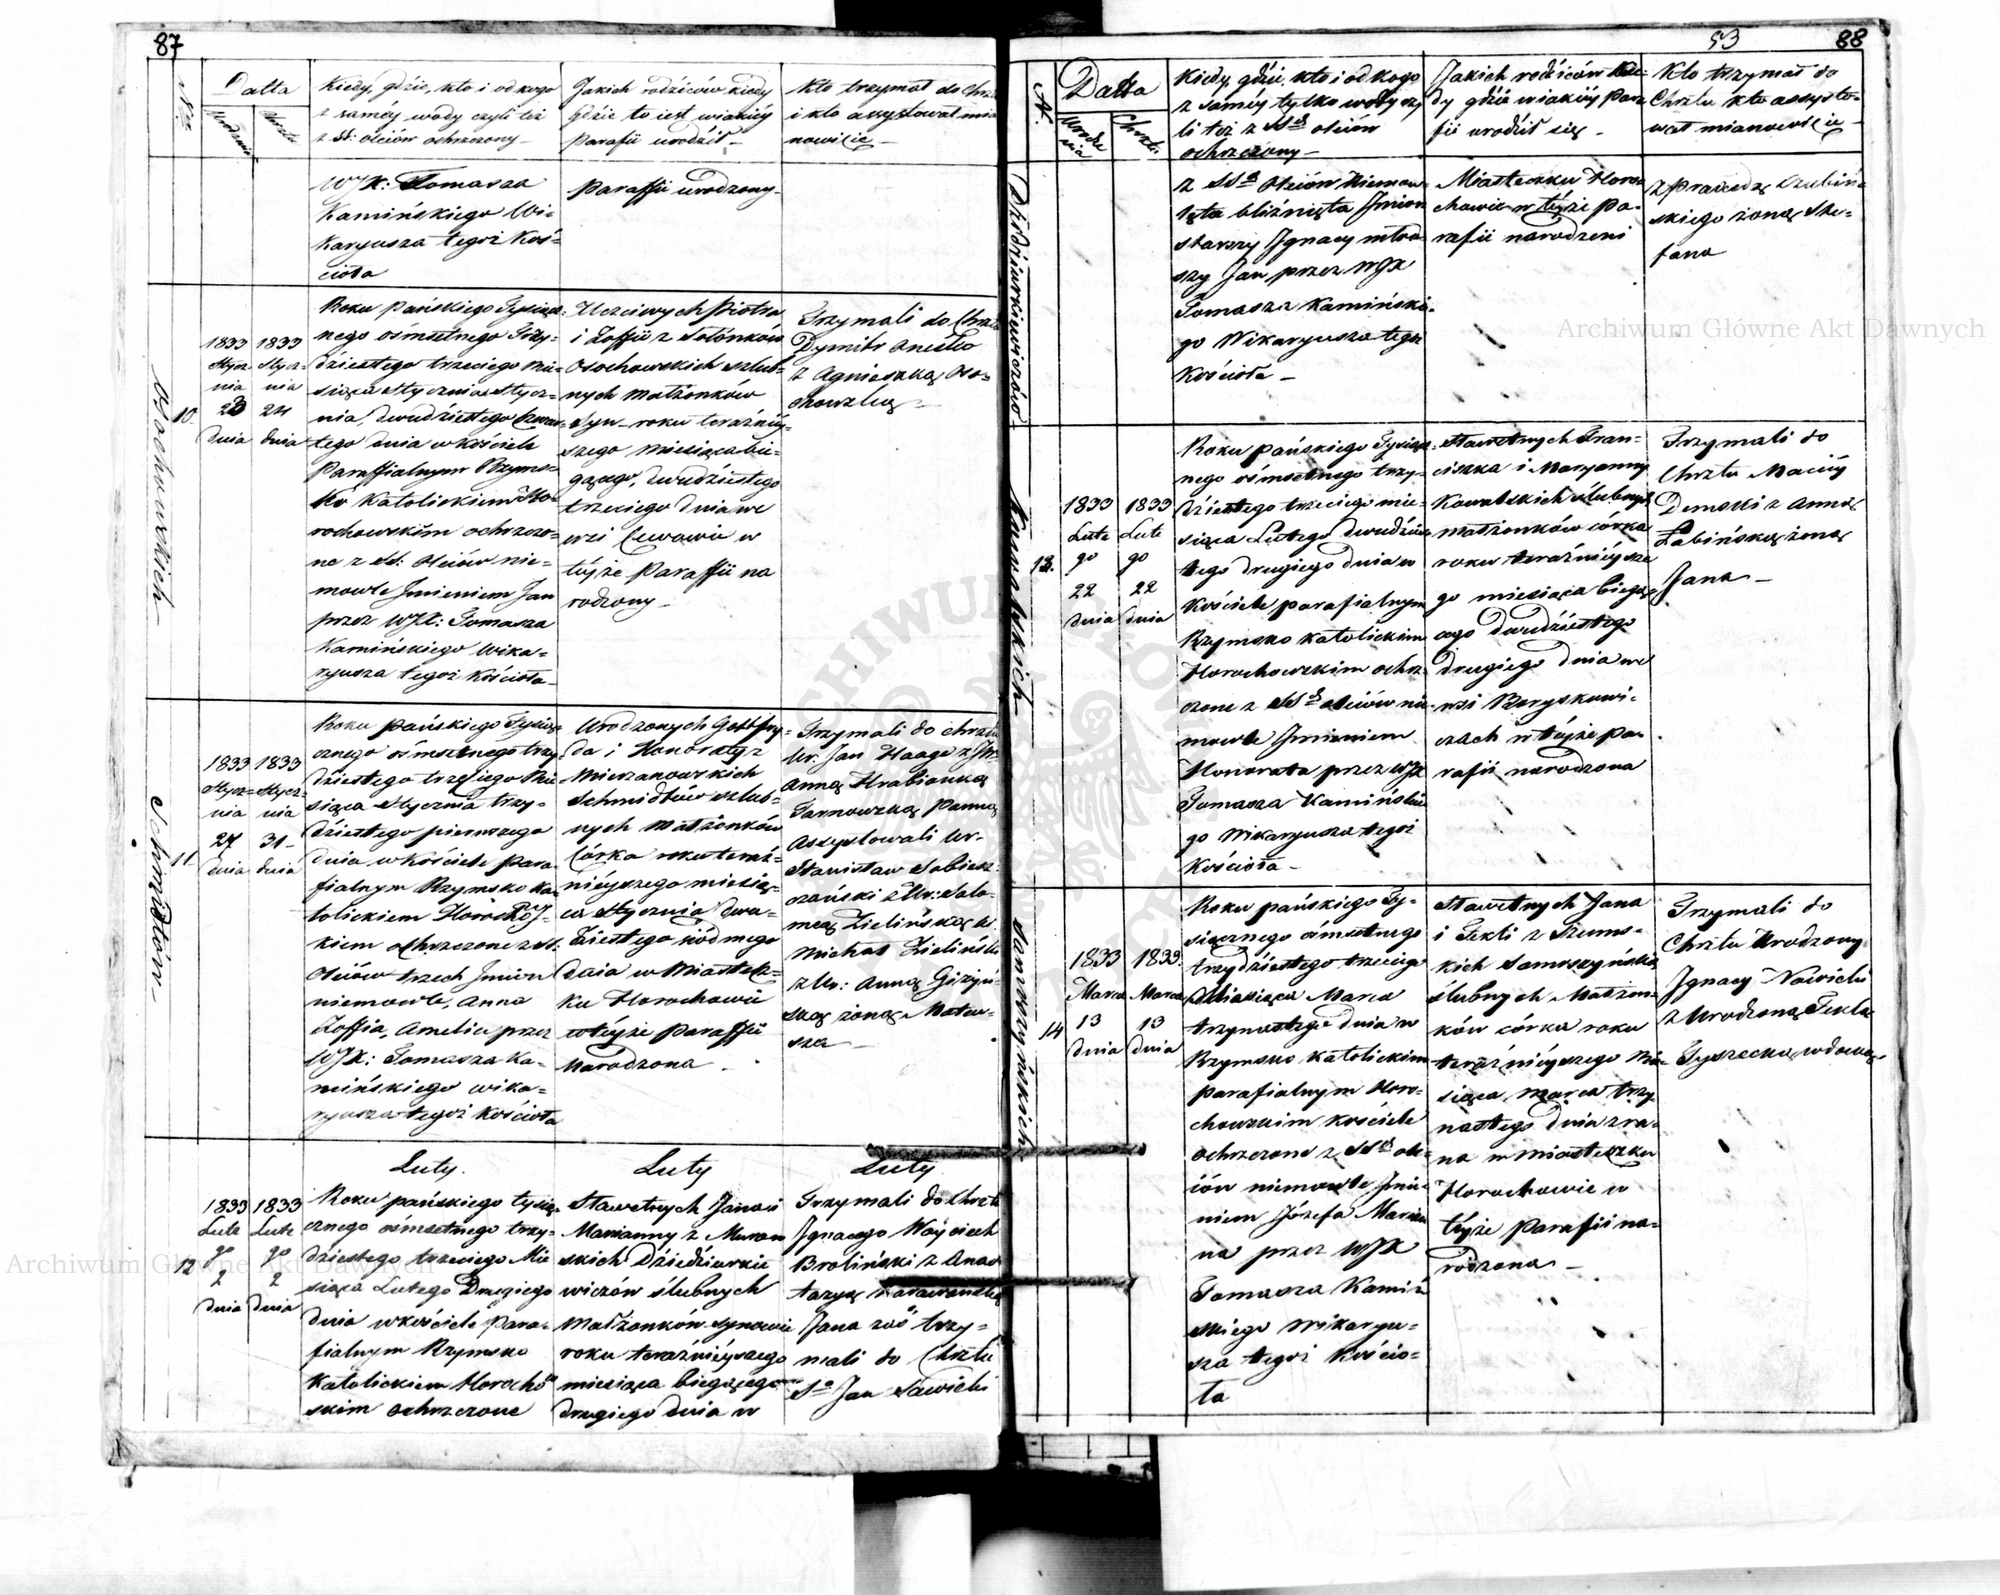 87
Nro
Datta
Urodzenia
Chrztu
Kiedy, gdzie, kto i od kogo
z saméy wody czyli też
z SS. Oleiów ochrzczony
Jakich rodziców kiedy
gdzie to iest w iakiéy
Parafii urodził
Kto trzymał do Chrztu
i kto assystował mia
nowicie
WJX: Tomasza
Kamińskiego Wi=
karyusza tegoż Koś=
cioła
Paraffii urodzony
10.
1833
Stycz
nia
23
dnia
1833
Stycz=
nia
24
dnia
Roku Pańskiego Tysiącz=
nego ośmsetnego Trzy=
dziestego trzeciego Mie=
siąca Stycznia Stycz=
nia, dwudziestego Czwar=
tego dnia w Kościele
Paraffialnym Rzyms=
ko Katolickiem Ho=
rochowskim ochrzczo=
ne z SS: Oleiów nie=
mowle Jmieniem Jan
przez WJX: Tomasza
Kamińskiego Wika=
ryusza tegoż Kościoła
Uczciwych Piotra
i Zoffii z
Osochowskich szlub=
nych małżonków
Syn roku teraźniéy=
szego Miesiąca bie=
gącego, dwudziestego
trzeciego dnia we
wsi w
téyże Paraffii na
rodzony
Trzymali do Chrztu
Dymitr
z Agnieszką Oso=
chowską
11.
Schmidtów
1833
Stycz=
nia
27
dnia
1833
Stycz=
nia
31
dnia
Roku Pańskiego Tysiąc
cznego ośmsetnego trzy
dziestego trzeciego Mie
siąca Stycznia trzy=
dziestego pierwszego
dnia w Kościele Para
fialnym Rzymsko Ka
tolickiem Horochows=
kiem ochrzczone z SS:
Oleiów trzech Jmion
niemowle, Anna
Zoffia, Amelia przez
WJX: Tomasza Ka=
mińskiego wika=
ryusza tegoż Kościoła
Urodzonych Gottfry=
da i Honoraty z
Mierzanowskich
Schmidtów szlub=
nych Małżonków
Córka roku teraź=
niéyszego miesią=
ca Stycznia dwu=
dziestego siódmego
dnia w Miastecz=
ku Horochowie
w téyże Paraffii
Narodzona
Trzymali do chrztu
Ur. Jan Haage z JW.
Anną Hrabianką
Tarnowską Panną
Assystowali Ur.
Stanisław Sobiesz=
czański z Ur: Salo=
meą Zielińską, Ur.
Michał Zieliński
z Ur: Anną Giżyń=
ską żoną Mateu=
sza
Luty.
Luty
Luty
12
1833
Lute
go
2
dnia
1833
Lute
go
2
dnia
Roku pańskiego tysią=
cznego ośmsetnego trzy=
dziestego trzeciego Mie
siąca Lutego Drugiego
dnia w kościele Para=
fialnym Rzymsko
Katolickiem Horochow
skim ochrzczone
Sławetnych Jana i
Marianny z
skich Dziedziurkie
wiczów ślubnych
Małżonków synowie
roku teraźniéyszego
miesiąca biegącego
drugiego dnia w
Trzymali do Chrztu
Jgnacego Wóyciech
Broliński z Anas
tazyą
Jana zaś trzy=
mali do Chrztu
So Jan Sawicki
53
88
N.
Datta
Urodze
nia
Chrztu.
Kiedy, gdzie, kto i od kogo
z saméy tylko wody czy
li też z SSch oleiów
ochrzczony
Jakich rodziców kie=
dy gdzie w iakiéy Para
fii urodził się
Kto trzymał do
Chrztu kto assysto=
wał mianowicie
Dziedziurkiewiczów
z SSch Oleiów Niemow=
lęta bliźnięta Jmion
starszy Jgnacy młod
szy Jan, przez WJX
Tomasza Kamińskie=
go Wikaryusza tegoż
Kościoła
Miasteczku Horo=
chowie w téyże Pa=
rafii narodzeni
z Praxedą
skiego żoną Ste=
fana
13.
Kowalskich
1833
Lute
go
22
dnia
1833
Lute
go
22
dnia
Roku pańskiego Tysiącz=
nego ośmsetnego trzy=
dziestego trzeciego mie=
siąca Lutego dwudzies=
tego drugiego dnia w
Kościele parafialnym
Rzymsko Katolickim
Horochowskim ochrz=
czone z SSch oleiów nie=
mowle Jmieniem
Honorata przez WJX
Tomasza Kamińskie
go Wikaryusza tegoż
Kościoła
Sławetnych Fran=
ciszka i Maryanny
Kowalskich ślubnych
małżonków córka
roku teraźniéysze
go miesiąca biegą=
cego dwudziestego
drugiego dnia we
wsi Beryskowi=
czach w téyże pa=
rafii narodzona
Trzymali do
Chrztu Maciéy
Demski z Anną
Łabińską żoną
Jana
14
Samoszyńskich
1833
Marca
13
dnia
1833
Marca
13
dnia
Roku pańskiego Ty=
siącznego ośmsetnego
trzydziestego trzeciego
Miesiąca Marca
trzynastego dnia w
Rzymsko Katolickim
parafialnym Horo=
chowskim kościele
ochrzczone z SSch ole=
iów niemowle Jmie=
niem Józefa Marian
na przez WJX
Tomasza Kamiń
skiego Wikaryu=
sza tegoż Kościo=
ła
Sławetnych Jana
i Tekli z Szums=
kich Samoszyńskich
ślubnych Małżon=
ków córka roku
teraźniéyszego Mie=
siąca Marca trzy
nastego dnia zra=
na w Miasteczku
Horochowie w
téyże Parafii na=
rodzona
Trzymali do
Chrztu Urodzony
Jgnacy Nowicki
z Urodzoną Teklą
Tyszecką wdową
Archiwum Główne Akt Dawnych
Archiwum Główne Akt Dawnych